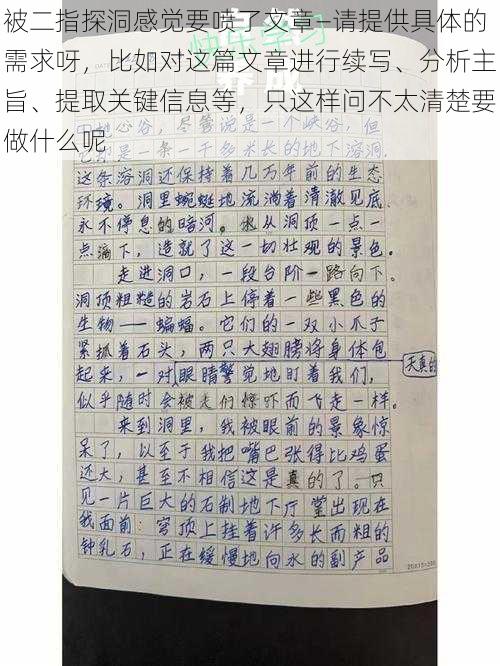 被二指探洞感觉要喷了文章—请提供具体的
需求呀，比如对这篇文章进行续写、分析主
旨、提取关键信息等，只这样问不太清楚要
做什么呢
快乐学习
地心谷，尽管说是一个峡谷，但
它却是一条一千多米长的地下溶洞.
这条溶洞还保持着几万年前的生态
环境。洞里蜿蜒地流淌着清澈见底、
永不停息的暗河。水从洞顶一点一
点滴下，造就了这一切壮观的景色。
走进洞口，一段台阶一路向下。
洞顶粗糙的岩石上停着一些黑色的
生物——蝙蝠。它们的一双小爪子
紧抓着石头，两只大翅膀将身体包
起来，一对眼睛警觉地盯着我们，
天真的
似乎随时会被走们惊吓而飞走一样。
来到洞里，我被眼前的景象惊
呆了，以至于我把嘴巴张得比鸡蛋
还大，甚至不相信这是真的了。只
见一片巨大的石制地下厅堂出现在
我面前：穹顶上挂着许多长而粗的
钟乳石，正在缓慢地向水的副产品